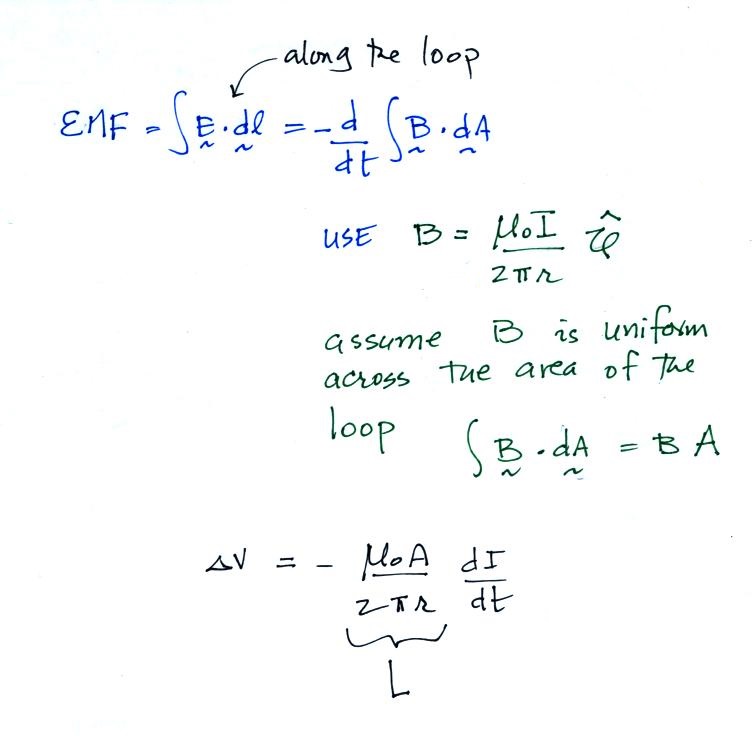 along the loop
EMF = ∫ E · dl = - d/dt ∫ B · dA
USE B = μ₀I / 2πr φ̂
assume B is uniform
across the area of the
loop ∫ B · dA = B A
ΔV = - μ₀A / 2πr dI/dt
L